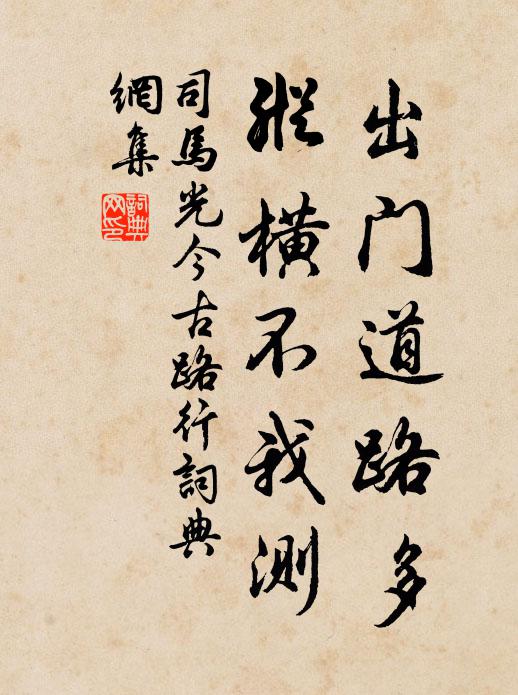 出门道路多
縱橫不我測
司馬光今古路行詞典
網集
詞典
网印